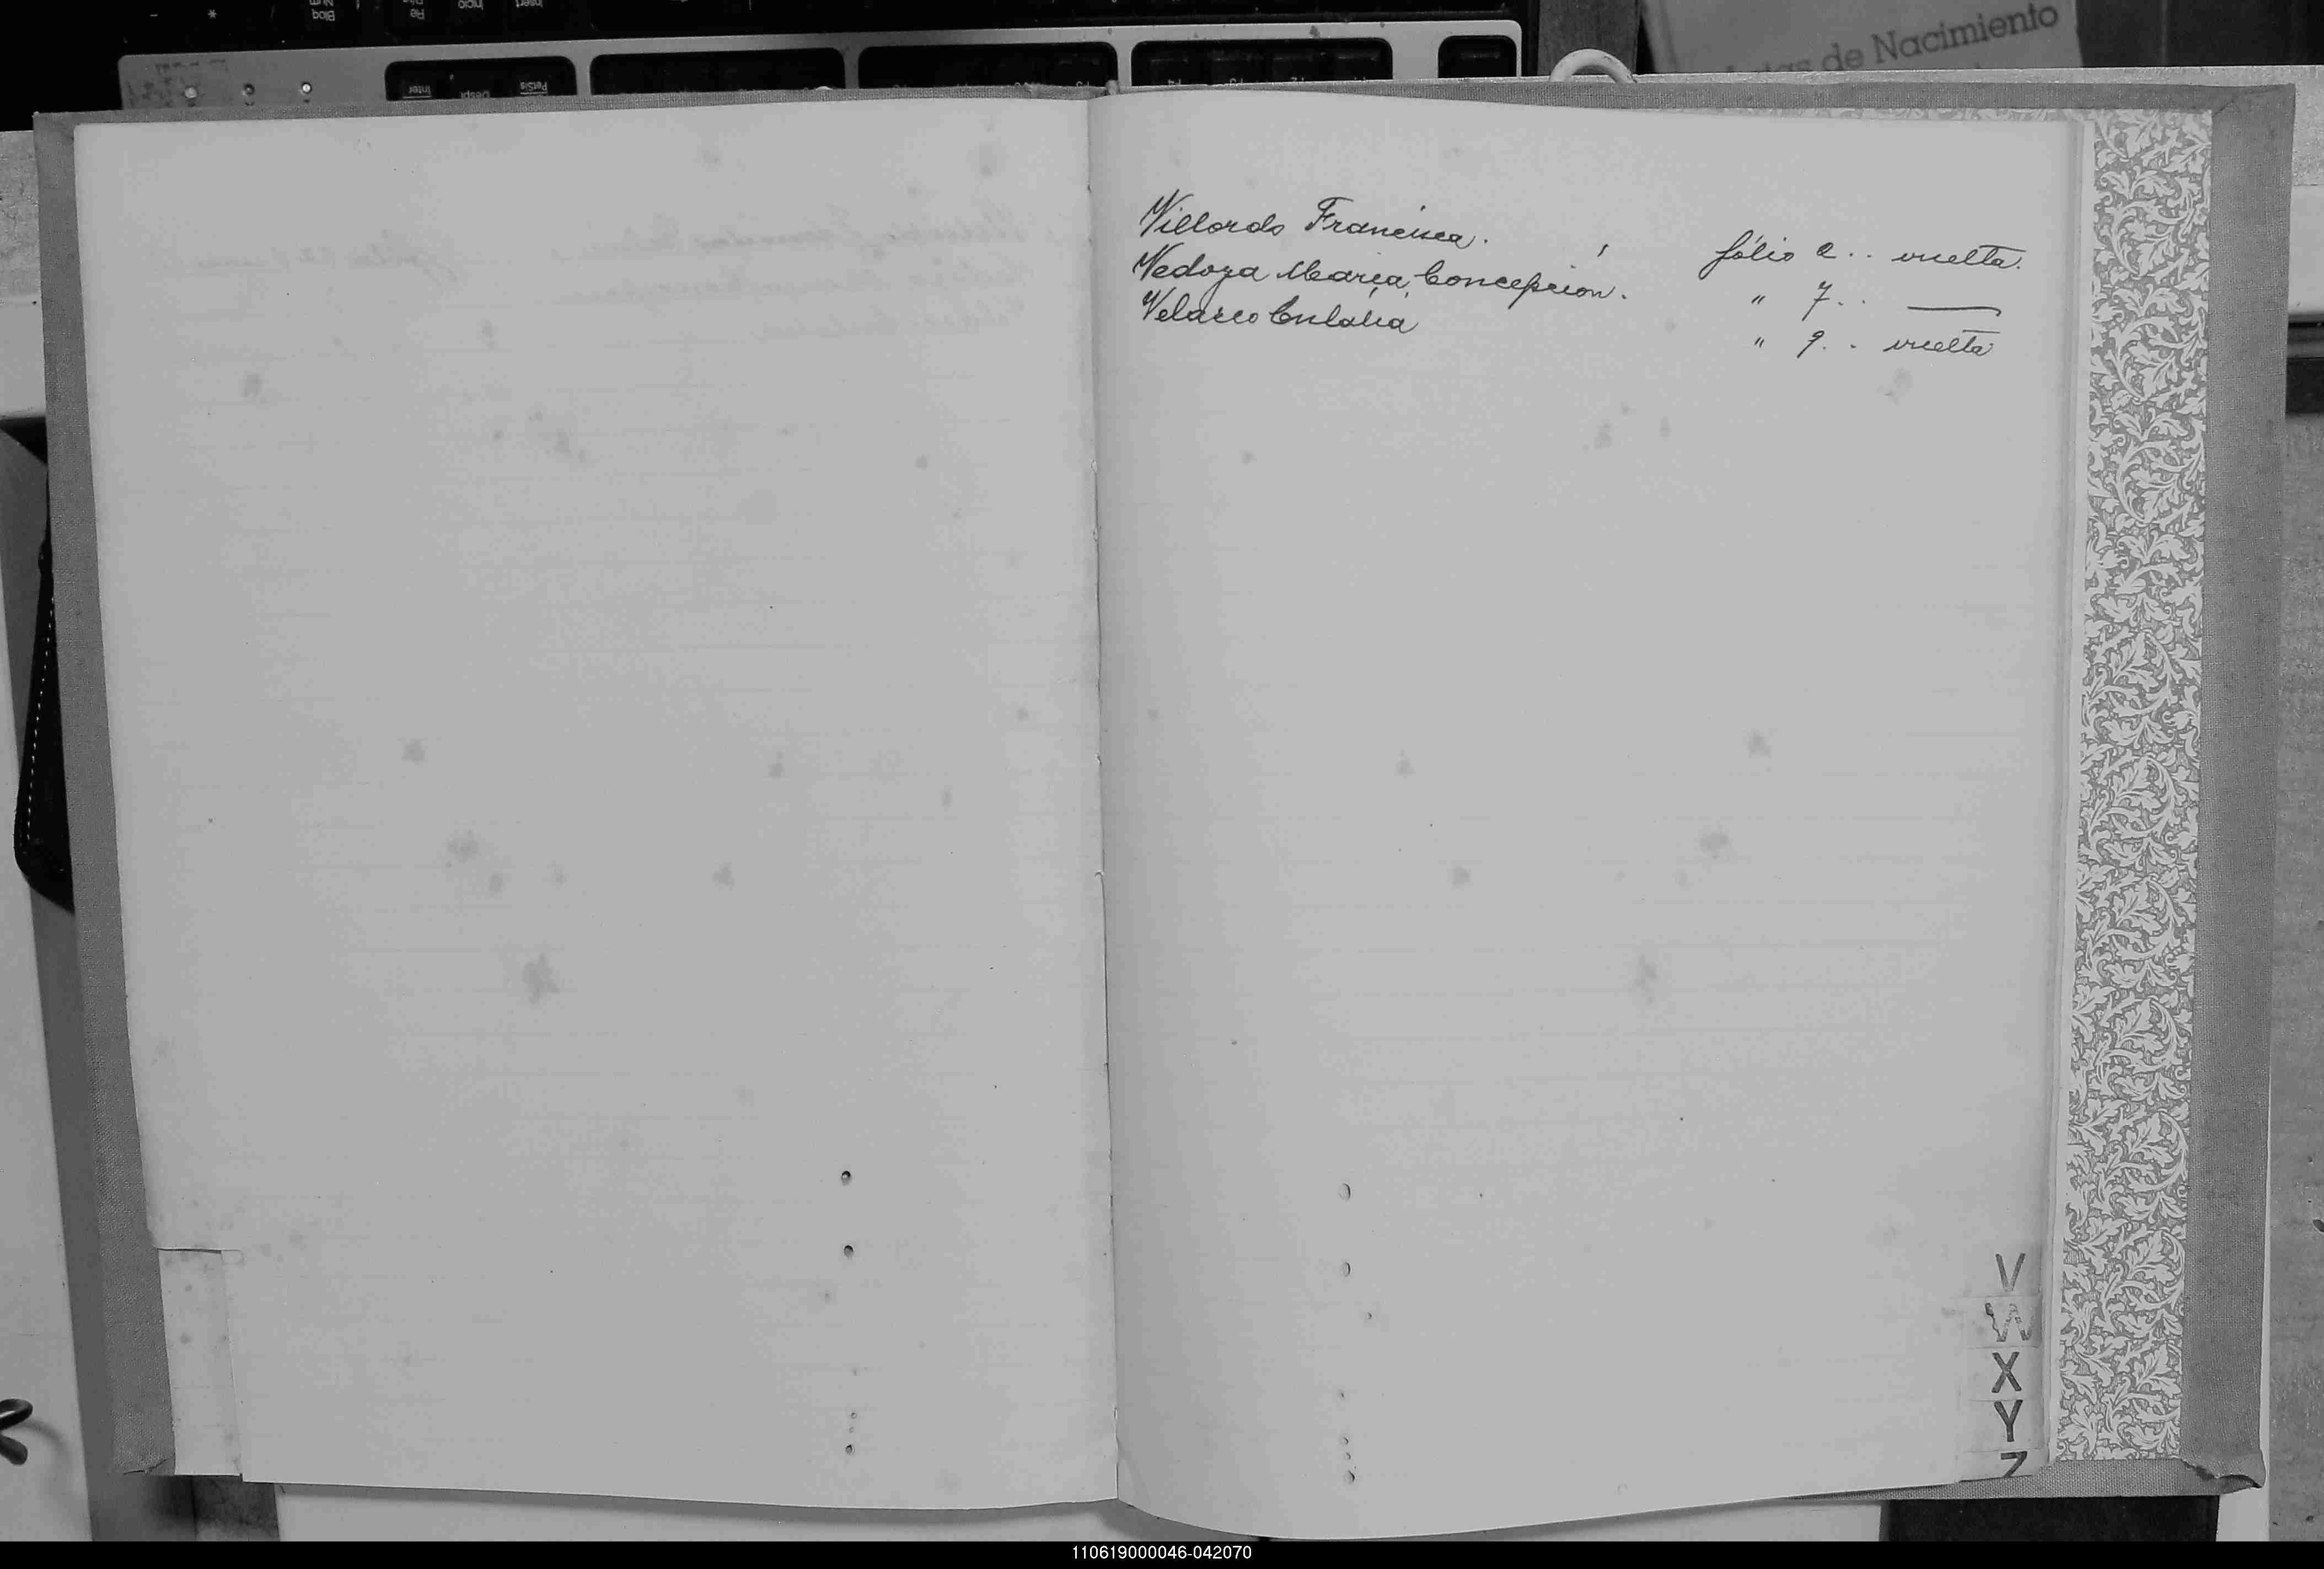 Actas de Nacimiento
Villordo Francisca. folio 2.. vuelta.
Vedoya Maria Concepcion. " 7..
Velasco Eulalia " 9.. vuelta
V
W
X
Y
Z
110619000046-042070